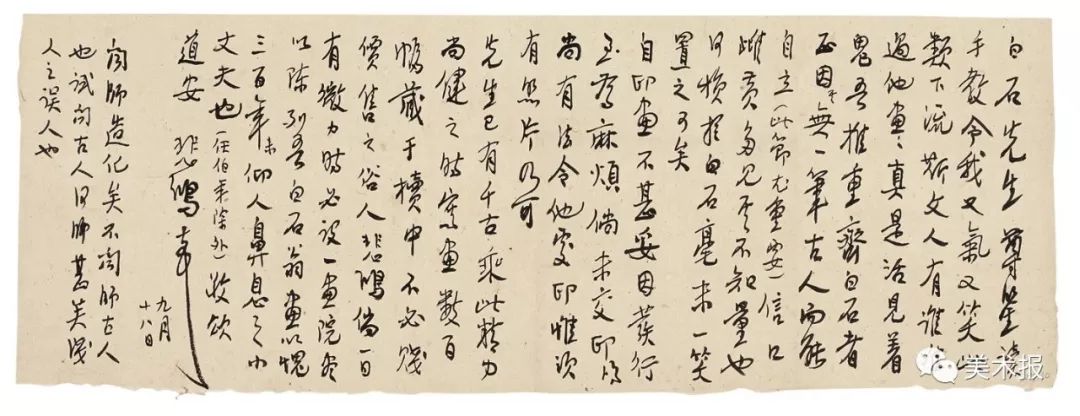 白石先生尊鉴诵
手教令我又氣又笑此
類下流斯文人有誰
過他畫畫真是活見着
鬼吾推重齊白石者
正因其無一筆古人而能
自立（此節尤重要）信口
雌黄多見其不知量也
何損於白石毫末一笑
置之可矣
自印畫不甚妥因發行
至為麻煩倘未交印
尚有法令他處印惟須
有照片乃可
先生已有千古乘此精力
尚健之時寫畫數百
幅藏于櫝中不必賤
價售之俗人悲鴻倘一日
有微力時必設一畫院盡
以陳列吾白石翁畫以愧
三百年来仰人鼻息之小
丈夫也（任伯年除外）
道安 悲鴻
九月
十八日
聞師造化矣不聞師古人
也試問古人何師甚矣淺
人之誤人也
美术报